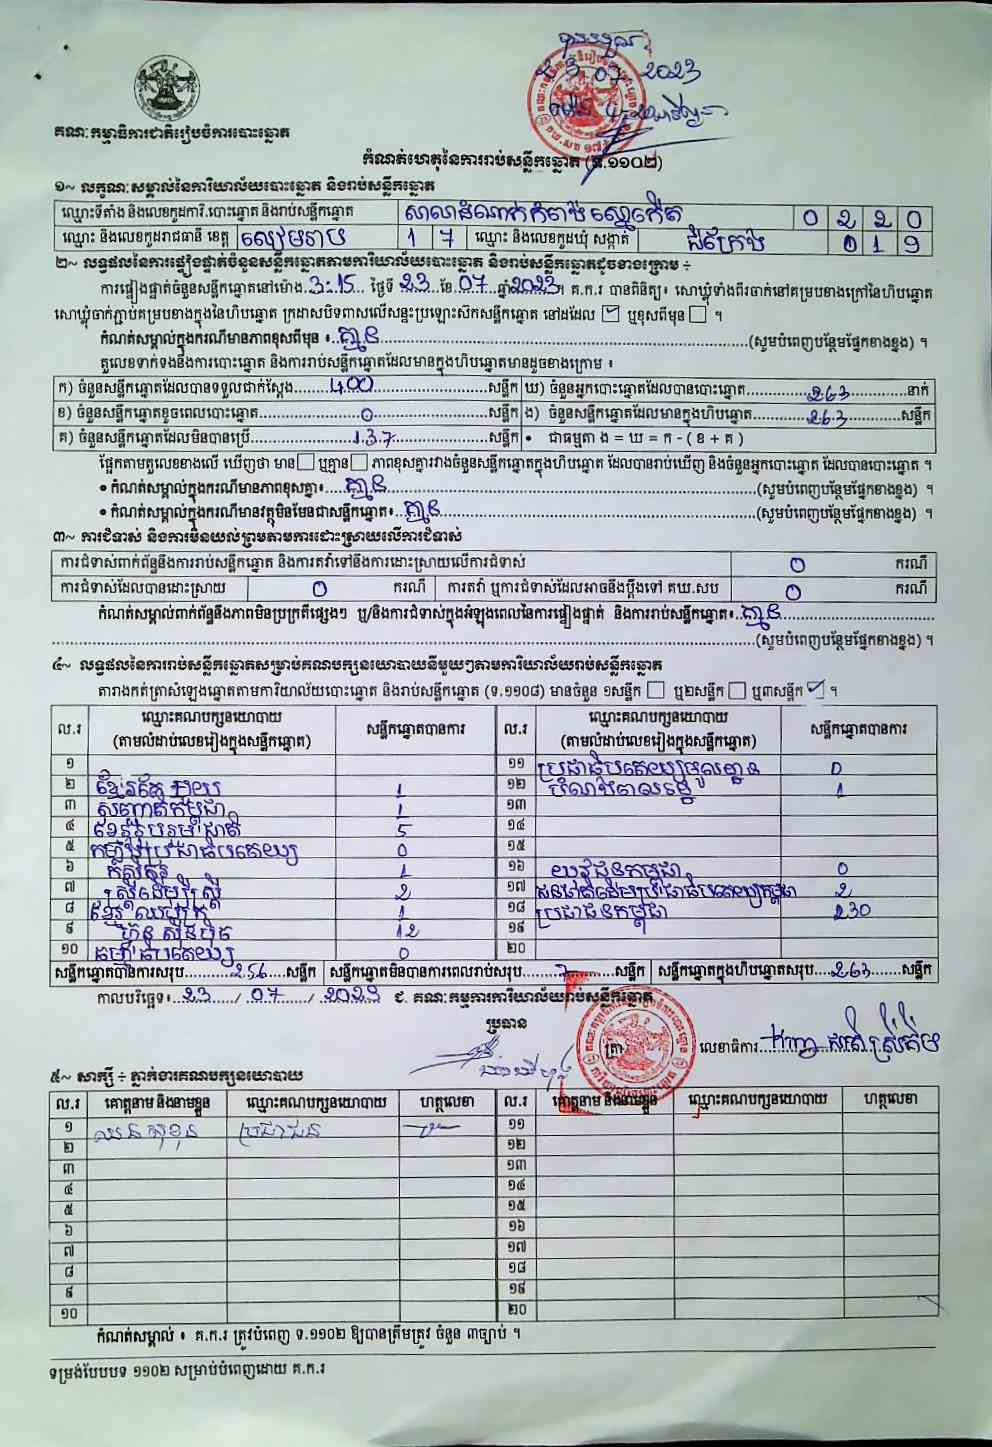 ៣.07 2023
គណៈកម្មាធិការជាតិរៀបចំការបោះឆ្នោត
កំណត់ហេតុនៃការរាប់សន្លឹកឆ្នោត (ទ.១១០២)
១~ លក្ខណៈសម្គាល់នៃការិយាល័យបោះឆ្នោត និងរាប់សន្លឹកឆ្នោត
ឈ្មោះទីតាំង និងលេខកូដការិ.បោះឆ្នោត និងរាប់សន្លឹកឆ្នោត សាលាដំណាក់កំពង់ 0 2 2 0
ឈ្មោះ និងលេខកូដរាជធានី ខេត្ត សៀមរាប 1 7 ឈ្មោះ និងលេខកូដឃុំ សង្កាត់ ជំក្រែង 0 1 9
២~ លទ្ធផលនៃការផ្ទៀងផ្ទាត់ចំនួនសន្លឹកឆ្នោតតាមការិយាល័យបោះឆ្នោត និងរាប់សន្លឹកឆ្នោតដូចខាងក្រោម ÷
ការផ្ទៀងផ្ទាត់ចំនួនសន្លឹកឆ្នោតនៅម៉ោង 3:15 ថ្ងៃទី 23 ខែ 07 ឆ្នាំ 2023 ។ គ.ក.រ បានពិនិត្យ៖ សោឃ្លុំទាំងពីរចាក់នៅគម្របខាងក្រៅនៃហិបឆ្នោត
សោឃ្លុំចាក់ភ្ជាប់គម្របខាងក្នុងនៃហិបឆ្នោត ក្រដាសបិទពាសលើសន្ទះប្រឡោះស៊កសន្លឹកឆ្នោត នៅដដែល ឬខុសពីមុន ។
កំណត់សម្គាល់ក្នុងករណីមានភាពខុសពីមុន ៖ គ្មាន (សូមបំពេញបន្ថែមផ្នែកខាងខ្នង) ។
តួលេខទាក់ទងនឹងការបោះឆ្នោត និងការរាប់សន្លឹកឆ្នោតដែលមានក្នុងហិបឆ្នោតមានដូចខាងក្រោម ៖
ក) ចំនួនសន្លឹកឆ្នោតដែលបានទទួលជាក់ស្តែង 400 សន្លឹក ឃ) ចំនួនអ្នកបោះឆ្នោតដែលបានបោះឆ្នោត 263 នាក់
ខ) ចំនួនសន្លឹកឆ្នោតខូចពេលបោះឆ្នោត 0 សន្លឹក ង) ចំនួនសន្លឹកឆ្នោតដែលមានក្នុងហិបឆ្នោត 263 សន្លឹក
គ) ចំនួនសន្លឹកឆ្នោតដែលមិនបានប្រើ 137 សន្លឹក • ជាធម្មតា ង = ឃ = ក - ( ខ + គ )
ផ្អែកតាមតួលេខខាងលើ ឃើញថា មាន ឬគ្មាន ភាពខុសគ្នារវាងចំនួនសន្លឹកឆ្នោតក្នុងហិបឆ្នោត ដែលបានរាប់ឃើញ និងចំនួនអ្នកបោះឆ្នោត ដែលបានបោះឆ្នោត ។
• កំណត់សម្គាល់ក្នុងករណីមានភាពខុសគ្នា៖ គ្មាន (សូមបំពេញបន្ថែមផ្នែកខាងខ្នង) ។
• កំណត់សម្គាល់ក្នុងករណីមានវត្ថុមិនមែនជាសន្លឹកឆ្នោត៖ គ្មាន (សូមបំពេញបន្ថែមផ្នែកខាងខ្នង) ។
៣~ ការជំទាស់ និងការមិនយល់ព្រមតាមការដោះស្រាយលើការជំទាស់
ការជំទាស់ពាក់ព័ន្ធនឹងការរាប់សន្លឹកឆ្នោត និងការតវ៉ាទៅនឹងការដោះស្រាយលើការជំទាស់ 0 ករណី
ការជំទាស់ដែលបានដោះស្រាយ 0 ករណី ការតវ៉ា ឬការជំទាស់ដែលអាចនឹងប្តឹងទៅ គឃ.សប 0 ករណី
កំណត់សម្គាល់ពាក់ព័ន្ធនឹងភាពមិនប្រក្រតីផ្សេងៗ ឬ/និងការជំទាស់ក្នុងអំឡុងពេលនៃការផ្ទៀងផ្ទាត់ និងការរាប់សន្លឹកឆ្នោត៖ គ្មាន
(សូមបំពេញបន្ថែមផ្នែកខាងខ្នង) ។
៤~ លទ្ធផលនៃការរាប់សន្លឹកឆ្នោតសម្រាប់គណបក្សនយោបាយនីមួយៗតាមការិយាល័យរាប់សន្លឹកឆ្នោត
តារាងកត់ត្រាសំឡេងឆ្នោតតាមការិយាល័យបោះឆ្នោត និងរាប់សន្លឹកឆ្នោត (ទ.១១០៨) មានចំនួន ១សន្លឹក ឬ២សន្លឹក ឬ៣សន្លឹក ។
ល.រ ឈ្មោះគណបក្សនយោបាយ (តាមលំដាប់លេខរៀងក្នុងសន្លឹកឆ្នោត) សន្លឹកឆ្នោតបានការ ល.រ ឈ្មោះគណបក្សនយោបាយ (តាមលំដាប់លេខរៀងក្នុងសន្លឹកឆ្នោត) សន្លឹកឆ្នោតបានការ
១ ១១ ប្រជាធិបតេយ្យមូលដ្ឋាន 0
២ 1 ១២ 1
៣ សញ្ជាតិកម្ពុជា 1 ១៣
៤ ខ្មែររួបរួមជាតិ 5 ១៤
៥ កម្លាំងប្រជាធិបតេយ្យ 0 ១៥
៦ កសិករ 1 ១៦ យុវជនកម្ពុជា 0
៧ ស្ត្រីដើម្បីស្ត្រី 2 ១៧ 2
៨ ខ្មែរ 1 ១៨ ប្រជាជនកម្ពុជា 230
៩ ហ៊្វុនស៊ិនប៉ិច 12 ១៩
១០ ធម្មាធិបតេយ្យ 0 ២០
សន្លឹកឆ្នោតបានការសរុប 256 សន្លឹក សន្លឹកឆ្នោតមិនបានការពេលរាប់សរុប 7 សន្លឹក សន្លឹកឆ្នោតក្នុងហិបឆ្នោតសរុប 263 សន្លឹក
កាលបរិច្ឆេទ៖ 23 / 07 / 2023 ជ. គណៈកម្មការការិយាល័យរាប់សន្លឹកឆ្នោត
ប្រធាន
ត្រា
លេខាធិការ
៥~ សាក្សី ÷ ភ្នាក់ងារគណបក្សនយោបាយ
ល.រ គោត្តនាម និងនាមខ្លួន ឈ្មោះគណបក្សនយោបាយ ហត្ថលេខា ល.រ គោត្តនាម និងនាមខ្លួន ឈ្មោះគណបក្សនយោបាយ ហត្ថលេខា
១ ប្រជាជន ១១
២ ១២
៣ ១៣
៤ ១៤
៥ ១៥
៦ ១៦
៧ ១៧
៨ ១៨
៩ ១៩
១០ ២០
កំណត់សម្គាល់ ៖ គ.ក.រ ត្រូវបំពេញ ទ.១១០២ ឱ្យបានត្រឹមត្រូវ ចំនួន ៣ច្បាប់ ។
ទម្រង់បែបបទ ១១០២ សម្រាប់បំពេញដោយ គ.ក.រ